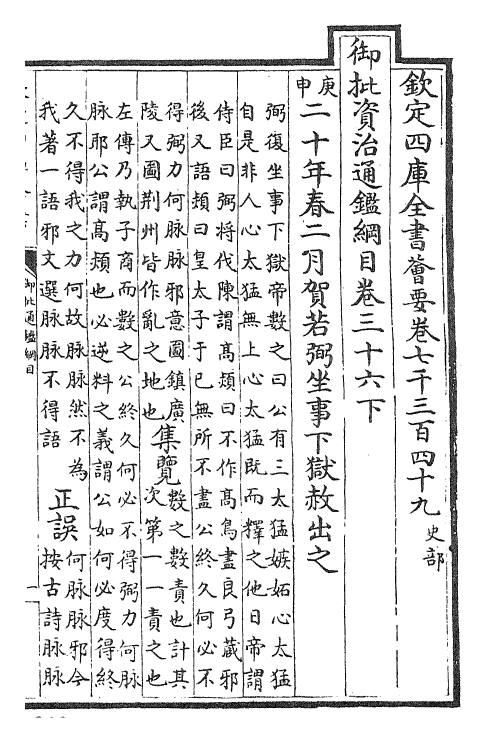 欽定四庫全書薈要卷七千三百四十九 史部
御批資治通鑑綱目卷三十六下
庚申 二十年春二月賀若弼坐事下獄赦出之
弼復坐事下獄帝數之曰公有三太猛嫉妬心太猛
自是非人心太猛無上心太猛既而釋之他日帝謂
侍臣曰弼將伐陳謂髙熲曰不作髙鳥盡良弓蔵邪
後又語熲曰皇太子于已無所不盡公終久何必不
得弼力何脉脉邪意圖鎮廣
陵又圖荆州皆作亂之地也 集覽 數之數責也計其
次第一一責之也
左傳乃執子商而數之公終久何必不得弼力何脉
脉耶公謂髙熲也必逆料之義謂公如何必度得終
久不得我之力何故脉脉然不為
我著一語邪文選脉脉不得語 正誤 何脉脉邪今
按古詩脉脉
御批通鑑綱目
一